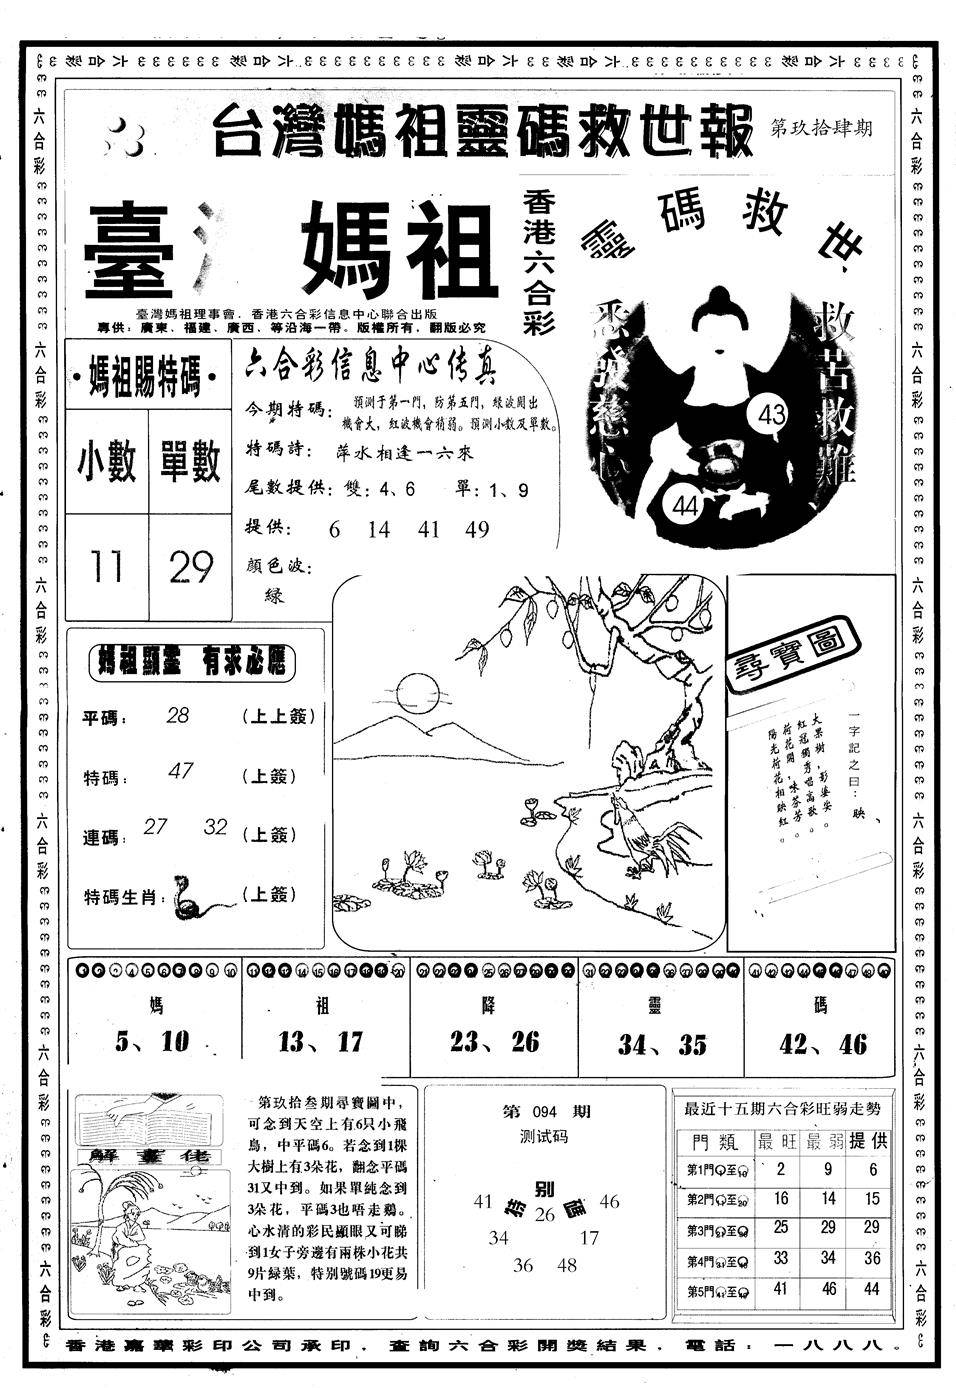 台灣媽祖靈碼救世報
第玖拾肆期
臺灣媽祖
臺灣媽祖理事會．香港六合彩信息中心聯合出版
專供：廣東、福建、廣西、等沿海一帶。版權所有，翻版必究
香港六合彩
靈碼救世
悉發慈心
救苦救難
43
44
·媽祖賜特碼·
小數 單數
11 29
六合彩信息中心传真
今期特碼：預測于第一門，防第五門，綠波開出
機會大，紅波機會稍弱。預測小數及單數。
特碼詩：萍水相逢一六來
尾數提供：雙：4、6 單：1、9
提供： 6 14 41 49
顏色波：
緑
媽祖顯靈 有求必應
平碼： 28 (上上簽)
特碼： 47 (上簽)
連碼： 27 32 (上簽)
特碼生肖： (上簽)
尋寶圖
一字記之曰：映
大果樹，影婆娑。
紅冠獨秀唱高歌。
荷花開，味芬芳。
陽光荷花相映紅。
媽 祖 降 靈 碼
5、10 13、17 23、26 34、35 42、46
解畫佬
第玖拾叁期尋寶圖中，
可念到天空上有6只小飛
鳥，中平碼6。若念到1棵
大樹上有3朵花，翻念平碼
31又中到。如果單純念到
3朵花，平碼3也唔走鷄。
心水清的彩民顯眼又可睇
到1女子旁邊有兩株小花共
9片緑葉，特別號碼19更易
中到。
第 094 期
测试码
特别碼
41 46
26
34 17
36 48
最近十五期六合彩旺弱走勢
門類 最旺 最弱 提供
第1門①至⑩ 2 9 6
第2門⑪至⑳ 16 14 15
第3門㉑至㉚ 25 29 29
第4門㉛至㊵ 33 34 36
第5門㊶至㊾ 41 46 44
香港嘉華彩印公司承印．查詢六合彩開獎結果．電話：一八八八。